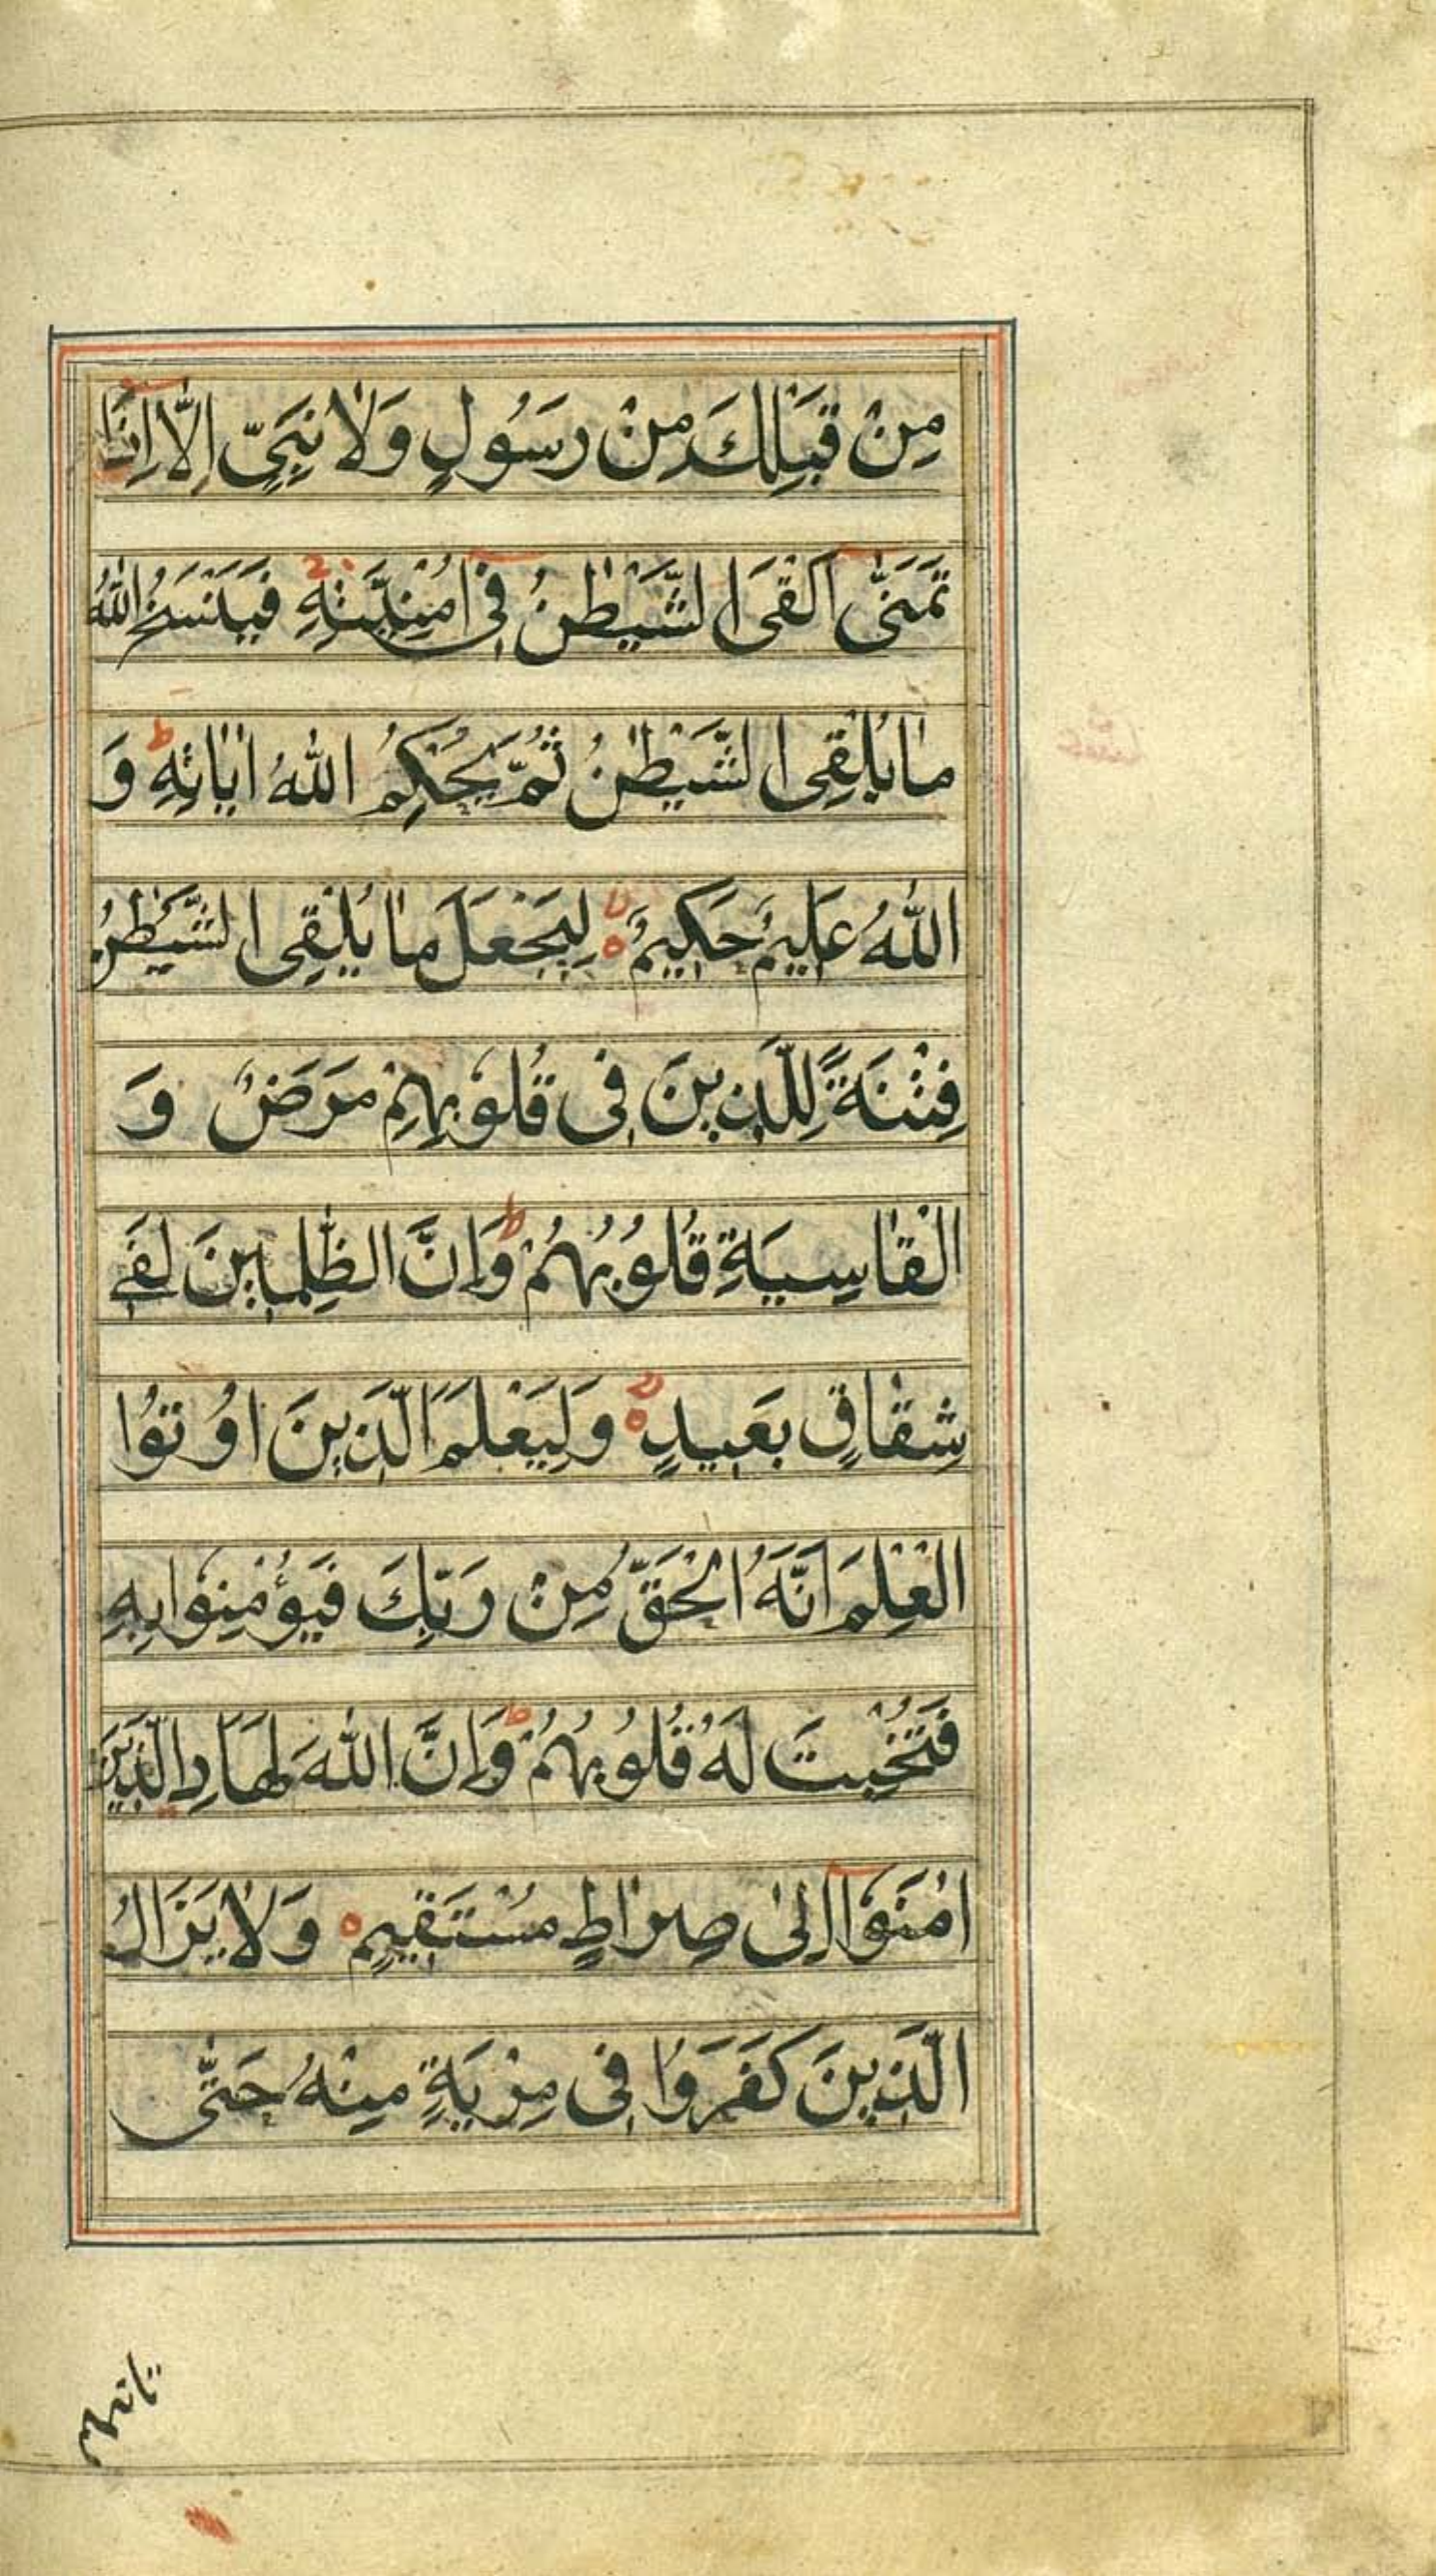 مِنْ قَبْلِكَ مِنْ رَسُولٍ وَلَا نَبِيٍّ اِلَّا اِذَا
تَمَنّٰى اَلْقَى الشَّيْطٰنُ فِى اُمْنِيَّتِهِ فَيَنْسَخُ اللّٰهُ
مَا يُلْقِى الشَّيْطٰنُ ثُمَّ يُحْكِمُ اللّٰهُ اٰيَاتِهِ ط وَ
اللّٰهُ عَلِيمٌ حَكِيمٌ ۙ لِيَجْعَلَ مَا يُلْقِى الشَّيْطٰنُ
فِتْنَةً لِلَّذِينَ فِى قُلُوْبِهِمْ مَرَضٌ وَ
الْقَاسِيَةِ قُلُوبُهُمْ ط وَاِنَّ الظّٰلِمِينَ لَفِى
شِقَاقٍ بَعِيدٍ ۙ وَلِيَعْلَمَ الَّذِينَ اُوْتُوا
الْعِلْمَ اَنَّهُ الْحَقُّ مِنْ رَبِّكَ فَيُؤْمِنُوْا بِهِ
فَتُخْبِتَ لَهُ قُلُوبُهُمْ ط وَاِنَّ اللّٰهَ لَهَادِ الَّذِينَ
اٰمَنُوْٓا اِلٰى صِرَاطٍ مُسْتَقِيمٍ ۝ وَلَا يَزَالُ
الَّذِينَ كَفَرُوا فِى مِرْيَةٍ مِنْهُ حَتّٰى
تاتيهم